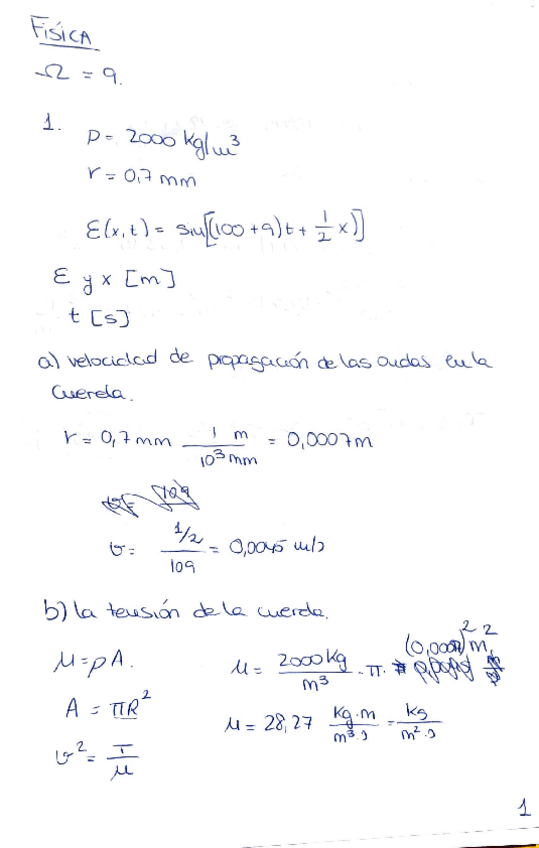 FíSíCA
Ω = 9.
1. ρ = 2000 kg/m³
r = 0,7 mm
Ɛ(x,t) = sin[(100+9)t + 1/2 x)]
Ɛ y x [m]
t [s]
a) velocidad de propagación de las ondas en la
cuerda.
r = 0,7 mm 1 m / 10³ mm = 0,0007 m
v = 1/2 / 109 = 0,0045 m/s
b) la tensión de la cuerda.
μ = ρA. μ = 2000 kg / m³ · π · (0,0007)² m²
A = πR²
μ = 28,27 kg·m / m³·s = kg / m²·s
v² = T / μ
1